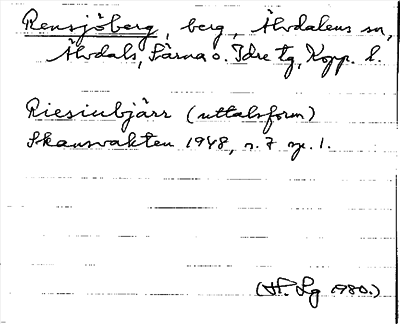 Rensjöberg, berg, Älvdalens sn,
Älvdals, Särna o. Idre tg, Kopp. l.
Riesiubjärr (uttalsform)
Skansvakten 1948, s. 7 sp. 1.
(H. Lg 1980.)